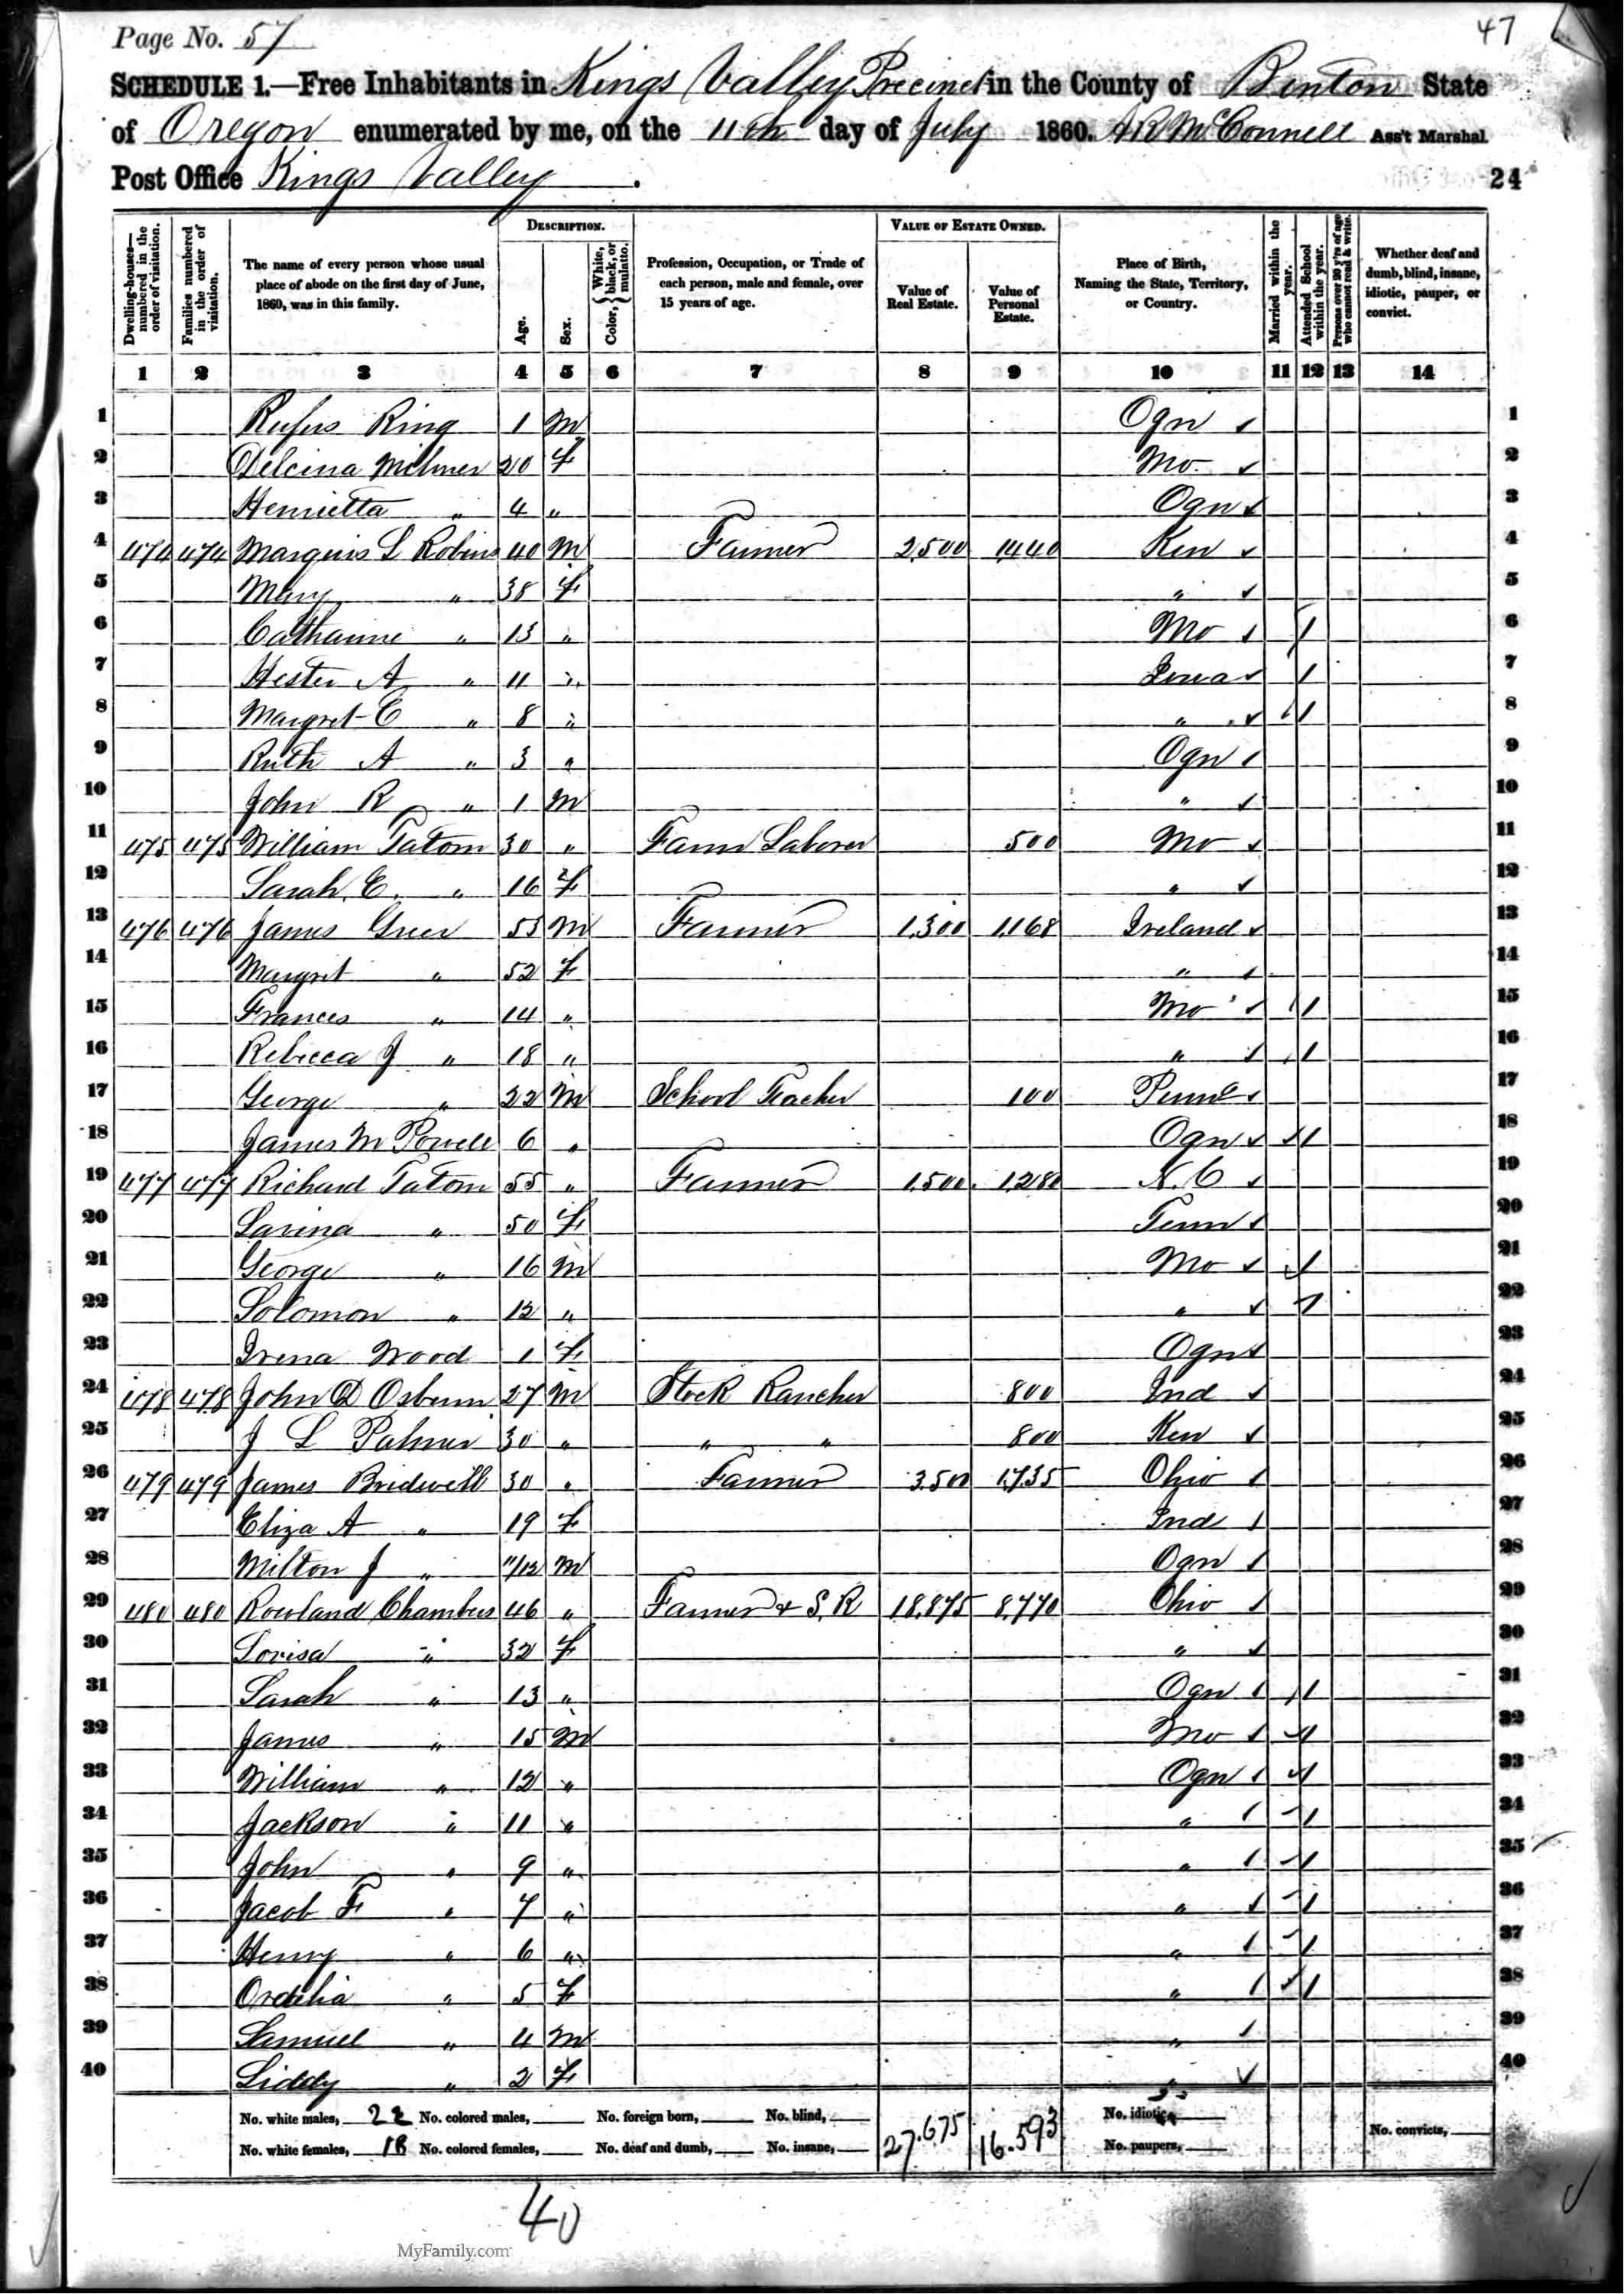 Page No. 57
47
SCHEDULE 1.—Free Inhabitants in Kings Valley Precinct in the County of Benton State
of Oregon enumerated by me, on the 11th day of July 1860. A R McConnell Ass't Marshal.
Post Office Kings Valley.
24
Dwelling-houses—numbered in the order of visitation.
Families numbered in the order of visitation.
The name of every person whose usual place of abode on the first day of June, 1860, was in this family.
DESCRIPTION.
Age.
Sex.
Color, { White, black, or mulatto.
Profession, Occupation, or Trade of each person, male and female, over 15 years of age.
VALUE OF ESTATE OWNED.
Value of Real Estate.
Value of Personal Estate.
Place of Birth, Naming the State, Territory, or Country.
Married within the year.
Attended School within the year.
Persons over 20 y'rs of age who cannot read & write.
Whether deaf and dumb, blind, insane, idiotic, pauper, or convict.
1 2 3 4 5 6 7 8 9 10 11 12 13 14
1 Rufus King 1 M Ogn 1
2 Delcina Milmer 20 F Mo. 2
3 Henrietta " 4 " Ogn 3
4 474 474 Marquis L Robins 40 M Farmer 2,500 1440 Ken 4
5 Mary " 38 F " 5
6 Catharine " 13 " Mo 1 6
7 Hester A " 11 " Iowa 1 7
8 Margret C " 8 " " 1 8
9 Ruth A " 3 " Ogn 9
10 John R " 1 M " 10
11 475 475 William Tatom 30 " Farm Laborer 500 Mo 11
12 Sarah E. " 16 F " 12
13 476 476 James Greer 53 M Farmer 1,300 1,168 Ireland 13
14 Margrit " 52 F " 14
15 Frances " 14 " Mo 1 15
16 Rebecca J " 18 " " 1 16
17 George " 22 M School Teacher 100 Penn 17
18 James M Powell 6 " Ogn 1 18
19 477 477 Richard Tatom 55 " Farmer 1,500 1,280 N.C 19
20 Lavina " 50 F Tenn 20
21 George " 16 M Mo 1 21
22 Solomon " 12 " " 1 22
23 Irena Wood 1 F Ogn 23
24 478 478 John D Osburn 27 M Stock Rancher 800 Ind 24
25 J L Palmer 30 " " " 800 Ken 25
26 479 479 James Bridwell 30 " Farmer 3,500 1,735 Ohio 26
27 Eliza A " 19 F Ind 27
28 Milton J " 11/12 M Ogn 28
29 480 480 Rowland Chambers 46 " Farmer & S.R 18,875 8,770 Ohio 29
30 Lovisa " 32 F " 30
31 Sarah " 13 " Ogn 1 31
32 James " 15 M Mo 1 32
33 William " 12 " Ogn 1 33
34 Jackson " 11 " " 1 34
35 John " 9 " " 1 35
36 Jacob F " 7 " " 1 36
37 Henry " 6 " " 1 37
38 Ordelia " 5 F " 1 38
39 Samuel " 4 M " 39
40 Liddy " 2 F " 40
No. white males, 22 No. colored males, No. foreign born, No. blind, 27.675 16.593 No. idiotic,
No. white females, 18 No. colored females, No. deaf and dumb, No. insane, No. paupers, No. convicts,
40
MyFamily.com